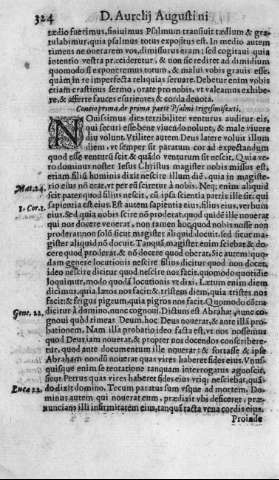 324 D. Aurelij Augustini
tædio fuerimus, siuimus Psalmum transiuit tædium & gra
tulabimur quia psalmus totus expositus est. In medio autem
timens ne onerarem vos, dissimulaturus eram: sed cogitaui quia
intentio vestra præcideretur, & non sic rediret ad dimidium
quomodo si exponeremus totum, & malui vobis grauis esse,
quàm in re imperfecta reliquias seruare. Debetur enim vobis
etiam crastinus sermo, orate pro nobis, vt valeamus exhibe-
re, & afferre fauces esurientes & corda deuota.
Contio prima de prima parte Psalmi trigesimisexti.
NOuissimus dies terribiliter venturus auditur eis,
qui securi esse bene viuendo nolunt, & malè viuere
diu volunt. Vtiliter autem Deus latere voluit illum
diem, vt semper sit paratum cor ad expectandum
quod esse venturū scit & quādo venturum sit nescit. Quia ve-
rò dominus noster Iesus Christus magister nobis missus est,
etiam filiū hominis dixit nescire illum diē, quia in magiste-
Mat. 24. rio eius nō erat, vt per eū sciretur à nobis. Neq; enim aliquid
scit pater quod filius nescit, cū ipsa scientia patris ille sit: qui
1. Cor. 1. sapientia eius est. Est autem sapientia eius, filius eius, verbum
eius. Sed quia nobis scire nō proderat, quod quidē ille nouerat
qui nos docere venerat, non tamen hoc, quod nobis nosse non
proderat: non solū sicut magister aliquid docuit, sed sicut ma-
gister aliquid nō docuit. Tanquā magister enim sciebat & do-
cere quod proderat, & nō docere quod oberat. Sic autem quo-
dam genere locutionis nescire filius dicitur quod non docet,
ideo nescire dicitur quod nescire nos facit, quomodo quotidie
loquimur, modo quodā locutionis vt dixi. Lætum enim diem
dicimus, quia lætos nos facit: & tristem diem, quia tristes nos
facit: & frigus pigrum, quia pigros nos facit. Quomodo ècōtra
Gene. 22. dicitur à domino, nunc cognoui. Dictum est Abrahæ, nunc co-
gnoui quòd times Deum. hoc, Deus nouerat, & ante illā pro-
bationem. Nam illa probatio ideo facta est, vt nos nossemus
quod Deus iam nouerat, & propter nos docendos conscribere-
tur, quod ante documentum ille nouerat: & fortasse & ipse
Abraham nondū nouerat quas vires haberet fides eius. Vnus-
quisque enim se tentatione tanquam interrogatus agnoscit,
sicut Petrus quas vires haberet fides eius vtiq; nesciebat, quā-
Luca 22. do dixit domino. Tecum paratus sum vsque ad mortem. Do-
minus autem qui nouerat eum, prædixit vbi deficeret: præ-
nuncians illi infirmitatem eius, tanquā tacta vena cordis eius.
Proinde